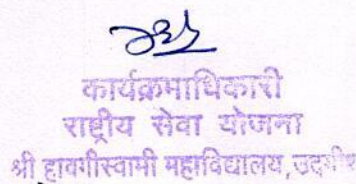 कार्यक्रमाधिकारी
राष्ट्रीय सेवा योजना
श्री हावगीस्वामी महाविद्यालय,